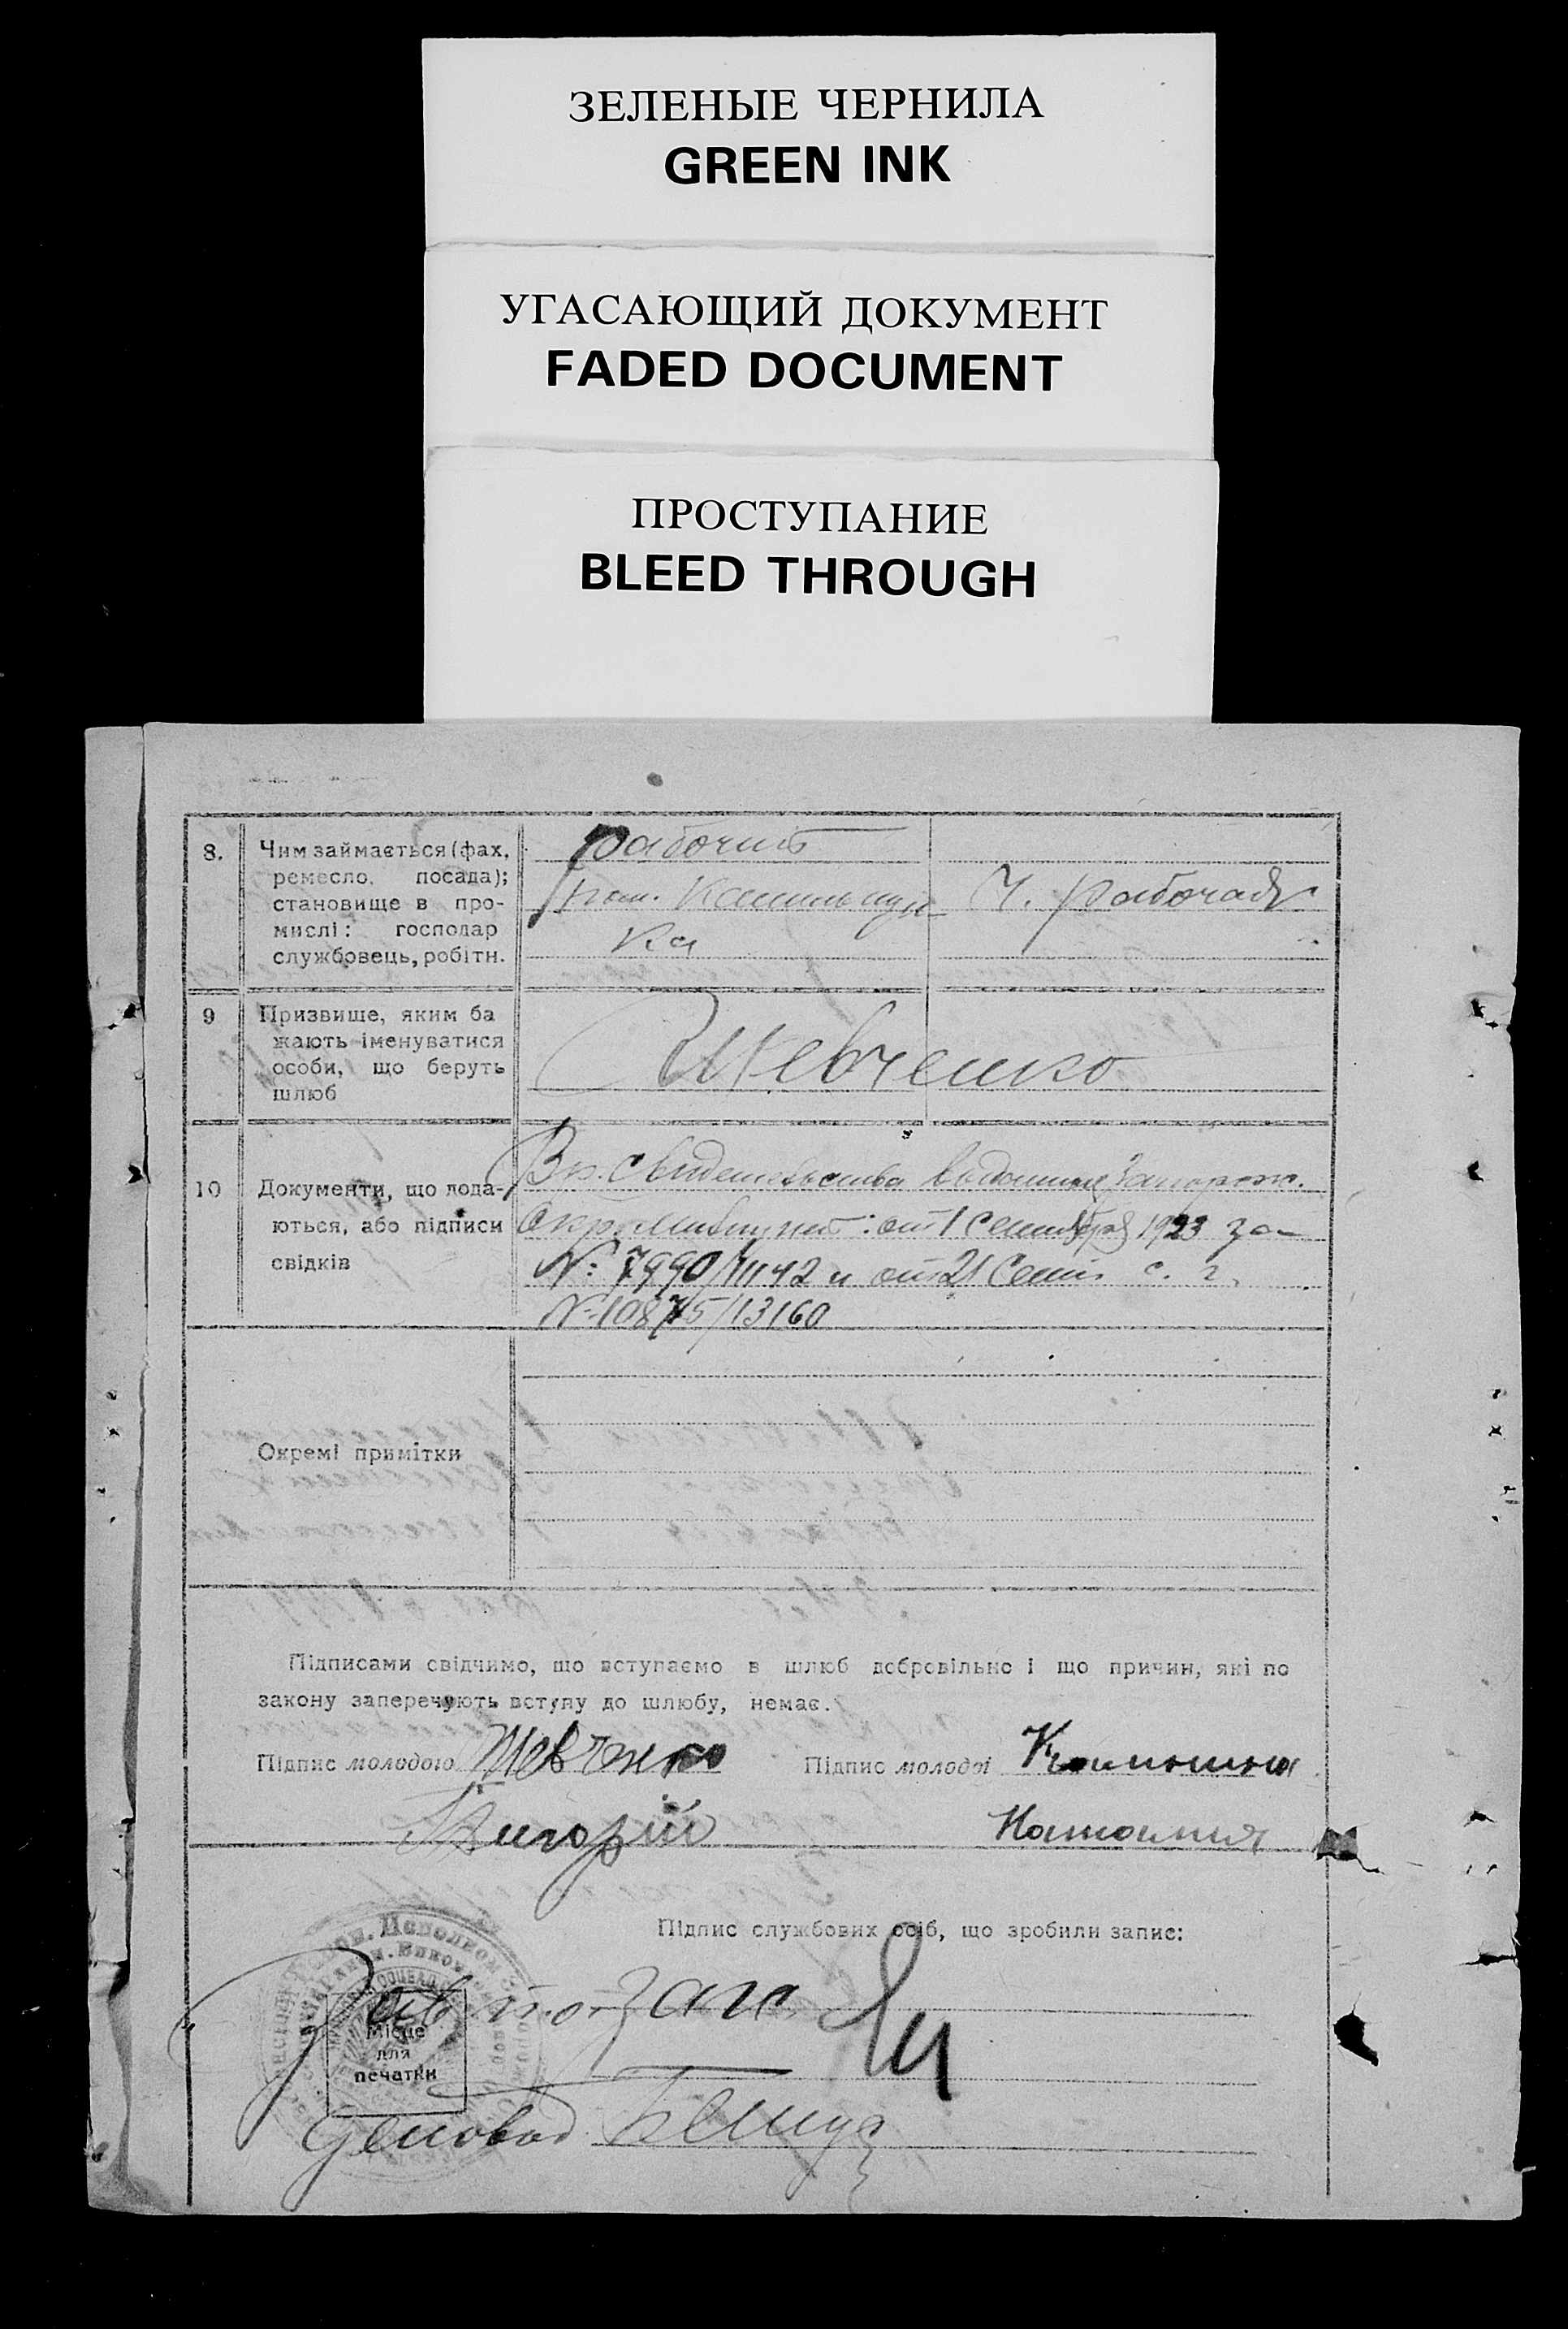 ЗЕЛЕНЫЕ ЧЕРНИЛА
GREEN INK
УГАСАЮЩИЙ ДОКУМЕНТ
FADED DOCUMENT
ПРОСТУПАНИЕ
BLEED THROUGH
8.
Чим займається (фах,
ремесло, посада);
становище в про-
мислі: господар
службовець, робітн.
рабочий
Ч. рабочая
9
Призвище, яким ба
жають іменуватися
особи, що беруть
шлюб
Шевченко
10
Документи, що дода-
ються, або підписи
свідків
свидетельства Запорож.
от 1 сентября 1923 за
№: 7990/11142 и от 21 Сент. с. г.
№ 10875/13160
Окремі примітки
Підписами свідчимо, що вступаємо в шлюб добровільно і що причин, які по
закону заперечують вступу до шлюбу, немає.
Підпис молодого Шевченко Підпис молодої
Григорій Наталия
Підпис службових осіб, що зробили запис:
Загс
Місце
для
печатки
Деловод